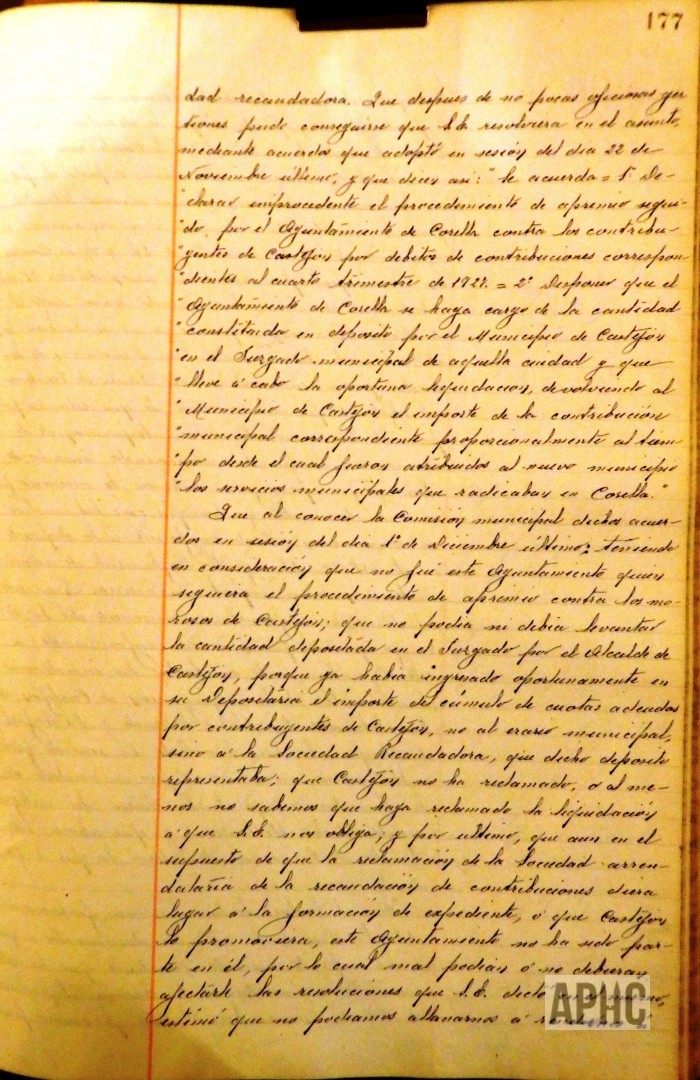 177
dad recaudadora. Que despues de no pocas oficiosas ges
tiones pudo conseguirse que S.E. resolviera en el asunto,
mediante acuerdos que adoptó en sesión del dia 22 de
Noviembre último, y que dicen asi: "Se acuerda = 1º De-
"clarar improcedente el procedimiento de apremio segui-
"do, por el Ayuntamiento de Corella contra los contribu-
"yentes de Castejón por debitos de contribuciones correspon-
"dientes al cuarto trimestre de 1927. = 2º Disponer que el
"Ayuntamiento de Corella se haga cargo de la cantidad
"constituida en deposito por el Municipio de Castejón
"en el Juzgado municipal de aquella ciudad y que
"lleve á cabo la oportuna liquidacion, devolviendo al
"Municipio de Castejón el importe de la contribución
"municipal correspondiente proporcionalmente al tiem-
"po desde el cual fueron atribuidos al nuevo municipio
"los servicios municipales que radicaban en Corella."
Que al conocer la Comisión municipal dichos acuer-
dos en sesión del dia 1º de Diciembre último; teniendo
en consideración que no fué este Ayuntamiento quien
siguiera el procedimiento de apremio contra los mo-
rosos de Castejón; que no podia ni debia levantar
la cantidad depositada en el Juzgado por el Alcalde de
Castejón, porque ya habia ingresado oportunamente en
su Depositaria el importe del cúmulo de cuotas adeudas
por contribuyentes de Castejón, no al erario municipal,
sino á la Sociedad Recaudadora, que dicho deposito
representaba; que Castejón no ha reclamado, ó al me-
nos no sabemos que haya reclamado la liquidación
á que S.E. nos obliga; y por último, que aun en el
supuesto de que la reclamación de la Sociedad arren-
dataria de la recaudación de contribuciones diera
lugar á la formación de expediente, ó que Castejón
lo promoviera, este Ayuntamiento no ha sido par-
te en él, por lo cual mal podian ó no debieran
afectarle las resoluciones que S.E. dictó en el mismo,
estimó que no podiamos allanarnos á
APHC